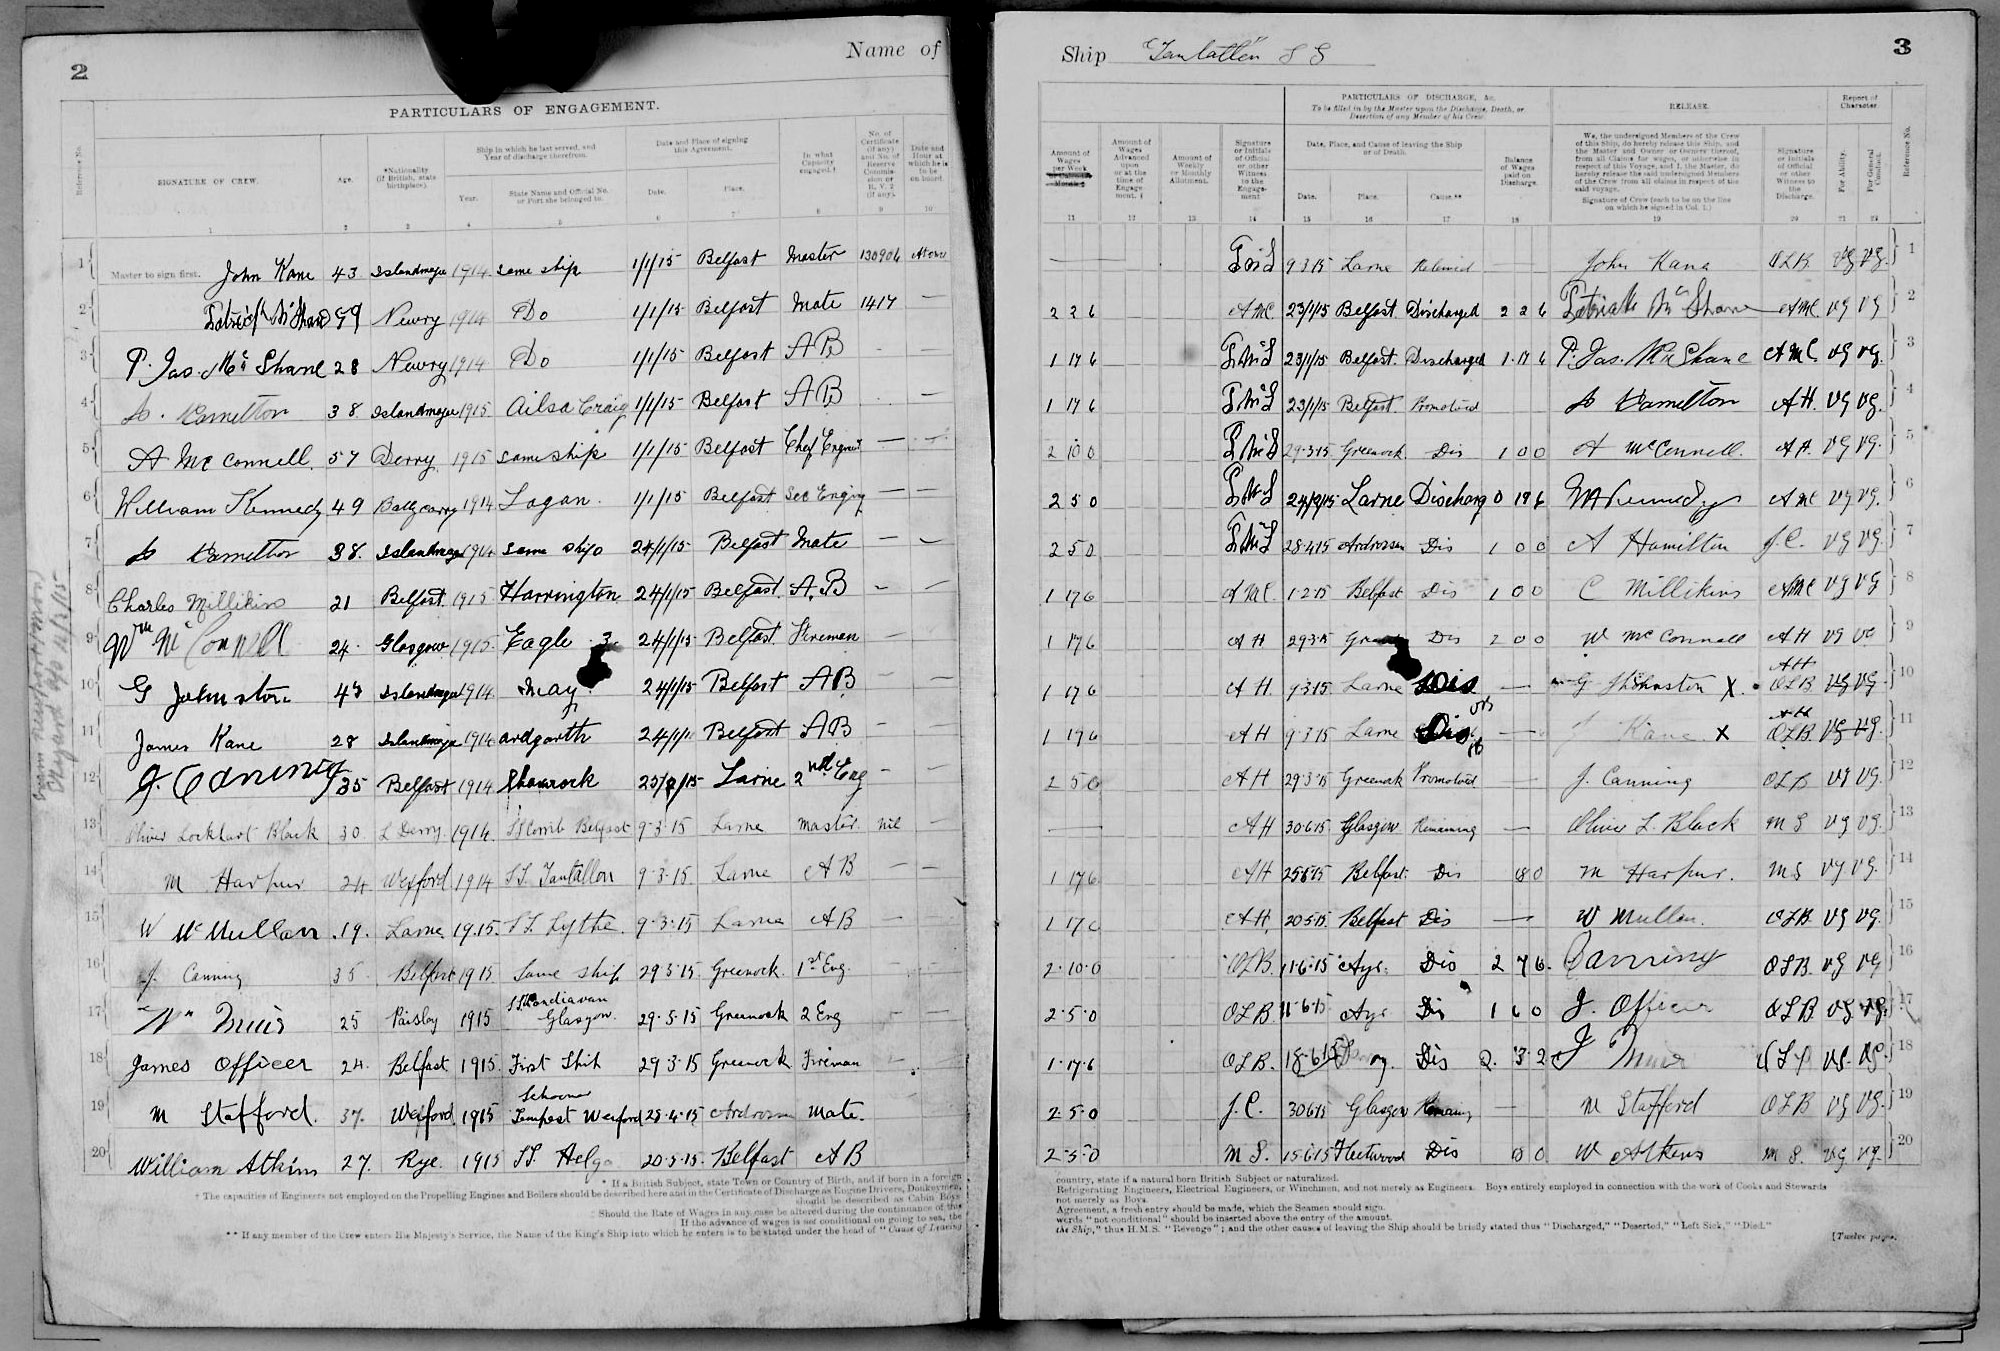 2
Name of
PARTICULARS OF ENGAGEMENT.
Reference No.
SIGNATURE OF CREW.
Age.
*Nationality (If British, state birthplace).
Ship in which he last served, and Year of discharge therefrom.
Year.
State Name and Official No. or Port she belonged to.
Date and Place of signing this Agreement.
Date.
Place.
In what Capacity engaged.†
No. of Certificate (if any) and No. of Reserve Commission or R. V. 2 (if any).
Date and Hour at which he is to be on board.
1 2 3 4 5 6 7 8 9 10
1 Master to sign first. John Kane 43 Islandmagee 1914 same ship 1/1/15 Belfast Master 130906
2 Newry 1914 Do 1/1/15 Belfast Mate 1417 —
3 P. Jas. Mc Shane 28 Newry 1914 Do 1/1/15 Belfast AB
4 Hamilton 38 Islandmagee 1915 Ailsa Craig 1/1/15 Belfast AB —
5 A Mc Connell 57 Derry 1915 same ship 1/1/15 Belfast Chef Engineer —
6 William Kennedy 49 Ballycarry 1914 Logan 1/1/15 Belfast Sec —
7 Hamilton 38 Islandmagee 1914 same ship 24/1/15 Belfast Mate —
8 Charles Millikins 21 Belfast 1915 Harrington 24/1/15 Belfast A.B —
9 Wm Mc Connell 24 Glasgow 1915 Eagle 3 24/1/15 Belfast Fireman —
10 G Johnston 43 Islandmagee 1914 May 24/1/15 Belfast AB —
11 James Kane 28 Islandmagee 1914 ardgarth 24/1/1 Belfast AB —
12 J. Canning 35 Belfast 1914 Shamrock Larne 2nd Eng
13 Oliver Lockhart Black 30 L Derry 1914 SS Comb Belfast 9-3-15 Larne master nil —
14 M Harpur 24 Wexford 1914 S.S. Tantallon 9-3-15 Larne AB —
15 W Mc Mullan 19 Larne 1915 S.S. Lythe 9-3-15 Larne AB —
16 J. Canning 35 Belfast 1915 Same ship 29 3 15 Greenock 1st Eng. —
17 Muir 25 Paisley 1915 Glasgow 29-3-15 Greenock 2 Eng —
18 James Officer 24 Belfast 1915 First Ship 29 3 15 Greenock Fireman —
19 M Stafford. 37 Wexford 1915 Schooner Tempest Wexford 28-4-15 Ardrossan Mate.
20 William Atkins 27 Rye 1915 S.S. Helga 20-5-15 Belfast AB
* If a British Subject, state Town or Country of Birth, and if born in a foreign
† The capacities of Engineers not employed on the Propelling Engines and Boilers should be described here and in the Certificate of Discharge as Engine Drivers, Donkeymen,
should be described as Cabin Boys
‡ Should the Rate of Wages in any case be altered during the continuance of this
|| If the advance of wages is not conditional on going to sea, the
** If any member of the Crew enters His Majesty's Service, the Name of the King's Ship into which he enters is to be stated under the head of "Cause of Leaving
Ship "Tantallon" S S
3
PARTICULARS OF DISCHARGE, &c.
To be filled in by the Master upon the Discharge, Death, or Desertion of any Member of his Crew.
RELEASE.
Report of Character.
Amount of Wages per Week
Amount of Wages Advanced upon or at the time of Engagement.
Amount of Weekly or Monthly Allotment.
Signature or Initials of Official or other Witness to the Engagement
Date, Place, and Cause of leaving the Ship or of Death.
Date.
Place.
Cause.**
Balance of Wages paid on Discharge.
We, the undersigned Members of the Crew of this Ship, do hereby release this Ship, and the Master and Owner or Owners thereof, from all Claims for wages, or otherwise in respect of this Voyage, and I, the Master, do hereby release the said undersigned Members of the Crew from all claims in respect of the said voyage.
Signature of Crew (each to be on the line on which he signed in Col. 1.)
Signature or Initials of Official or other Witness to the Discharge.
For Ability.
For General Conduct.
Reference No.
11 12 13 14 15 16 17 18 19 20 21 22
— 9 3 15 Larne John Kane OLB VG VG. 1
2 2 6 AMC 23/1/15 Belfast Discharged 2 2 6 Mc Shane AMC VG VG 2
1 17 6 23/1/15 Belfast Discharged 1 17 6 P. Jas. Mc Shane AMC VG VG. 3
1 17 6 23/1/15 Belfast Promoted Hamilton AH. VG VG. 4
2 10 0 29-3-15 Greenock Dis 1 0 0 A McConnell. AH. VG VG. 5
2 5 0 Larne Discharg 0 19 6 Kennedy AMC VG VG. 6
2 5 0 28-4-15 Ardrossan Dis 1 0 0 A Hamilton J.C. VG VG. 7
1 17 6 AMC 1-2-15 Belfast Dis 1 0 0 C Millikins AMC VG VG 8
1 17 6 AH 29-3-15 Dis 2 0 0 W McConnell AH VG VG 9
1 17 6 AH 9-3-15 Larne Dis — G Johnston X AH OLB VG VG 10
1 17 6 AH 9-3-15 Larne Dis — J Kane X AH OLB VG VG. 11
2 5 0 AH 29-3-15 Greenock Promoted — J. Canning OLB VG VG. 12
— AH 30-6-15 Glasgow Remaining — Oliver L. Black MS VG VG. 13
1 17 6 AH Belfast Dis 8 0 M Harpur. MS VG VG. 14
1 17 6 AH 20-5-15 Belfast Dis — W Mullan. OLB VG VG. 15
2-10-0 OLB. 11-6-15 Ayr. Dis 2 7 6 Canning OLB. VG VG 16
2-5-0 OLB 11-6-15 Ayr Dis 1 6 0 J. Officer OLB VG VG. 17
1-17-6 OLB. 18-6-15 Dis 2. 3 2 J Muir VG. VG. 18
2-5-0 J.C. 30 6 15 Glasgow Remaining — M Stafford OLB VG VG. 19
2-5-0 M S. 15-6-15 Fleetwood Dis W Atkins M S. VG VG. 20
country, state if a natural born British Subject or naturalized.
Refrigerating Engineers, Electrical Engineers, or Winchmen, and not merely as Engineers. Boys entirely employed in connection with the work of Cooks and Stewards
not merely as Boys.
Agreement, a fresh entry should be made, which the Seamen should sign.
words "not conditional" should be inserted above the entry of the amount.
the Ship," thus H.M.S. "Revenge"; and the other causes of leaving the Ship should be briefly stated thus "Discharged," "Deserted," "Left Sick," "Died."
[Twelve pages.